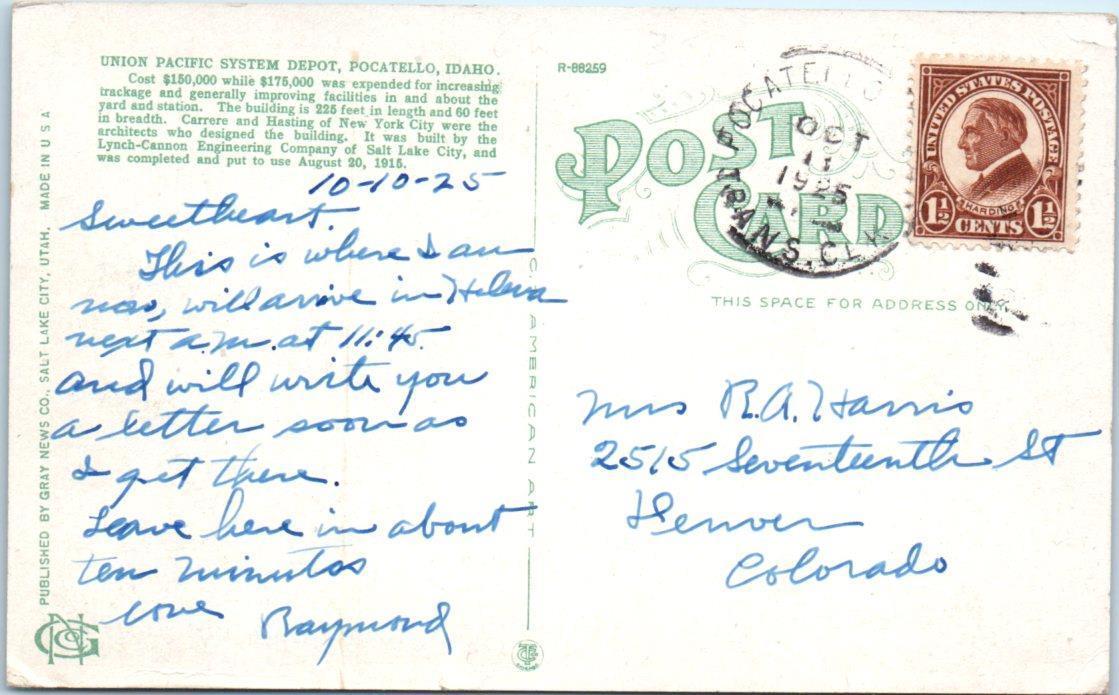 UNION PACIFIC SYSTEM DEPOT, POCATELLO, IDAHO.
Cost $150,000 while $175,000 was expended for increasing
trackage and generally improving facilities in and about the
yard and station. The building is 225 feet in length and 60 feet
in breadth. Carrere and Hasting of New York City were the
architects who designed the building. It was built by the
Lynch-Cannon Engineering Company of Salt Lake City, and
was completed and put to use August 20, 1915.
10-10-25
Sweetheart.
This is where I am
now, will arrive in Helena
next a.m. at 11:45
and will write you
a letter soon as
I get there.
Leave here in about
ten minutes
love Raymond
PUBLISHED BY GRAY NEWS CO., SALT LAKE CITY, UTAH. MADE IN U S A
C AMERICAN ART
R-88259
POST
CARD
POCATELLO
OCT
11
1925
TRANS. CLK
UNITED STATES POSTAGE
HARDING
1½ CENTS 1½
THIS SPACE FOR ADDRESS ONLY
Mrs R.A. Harris
2515 Seventeenth St
Denver
Colorado